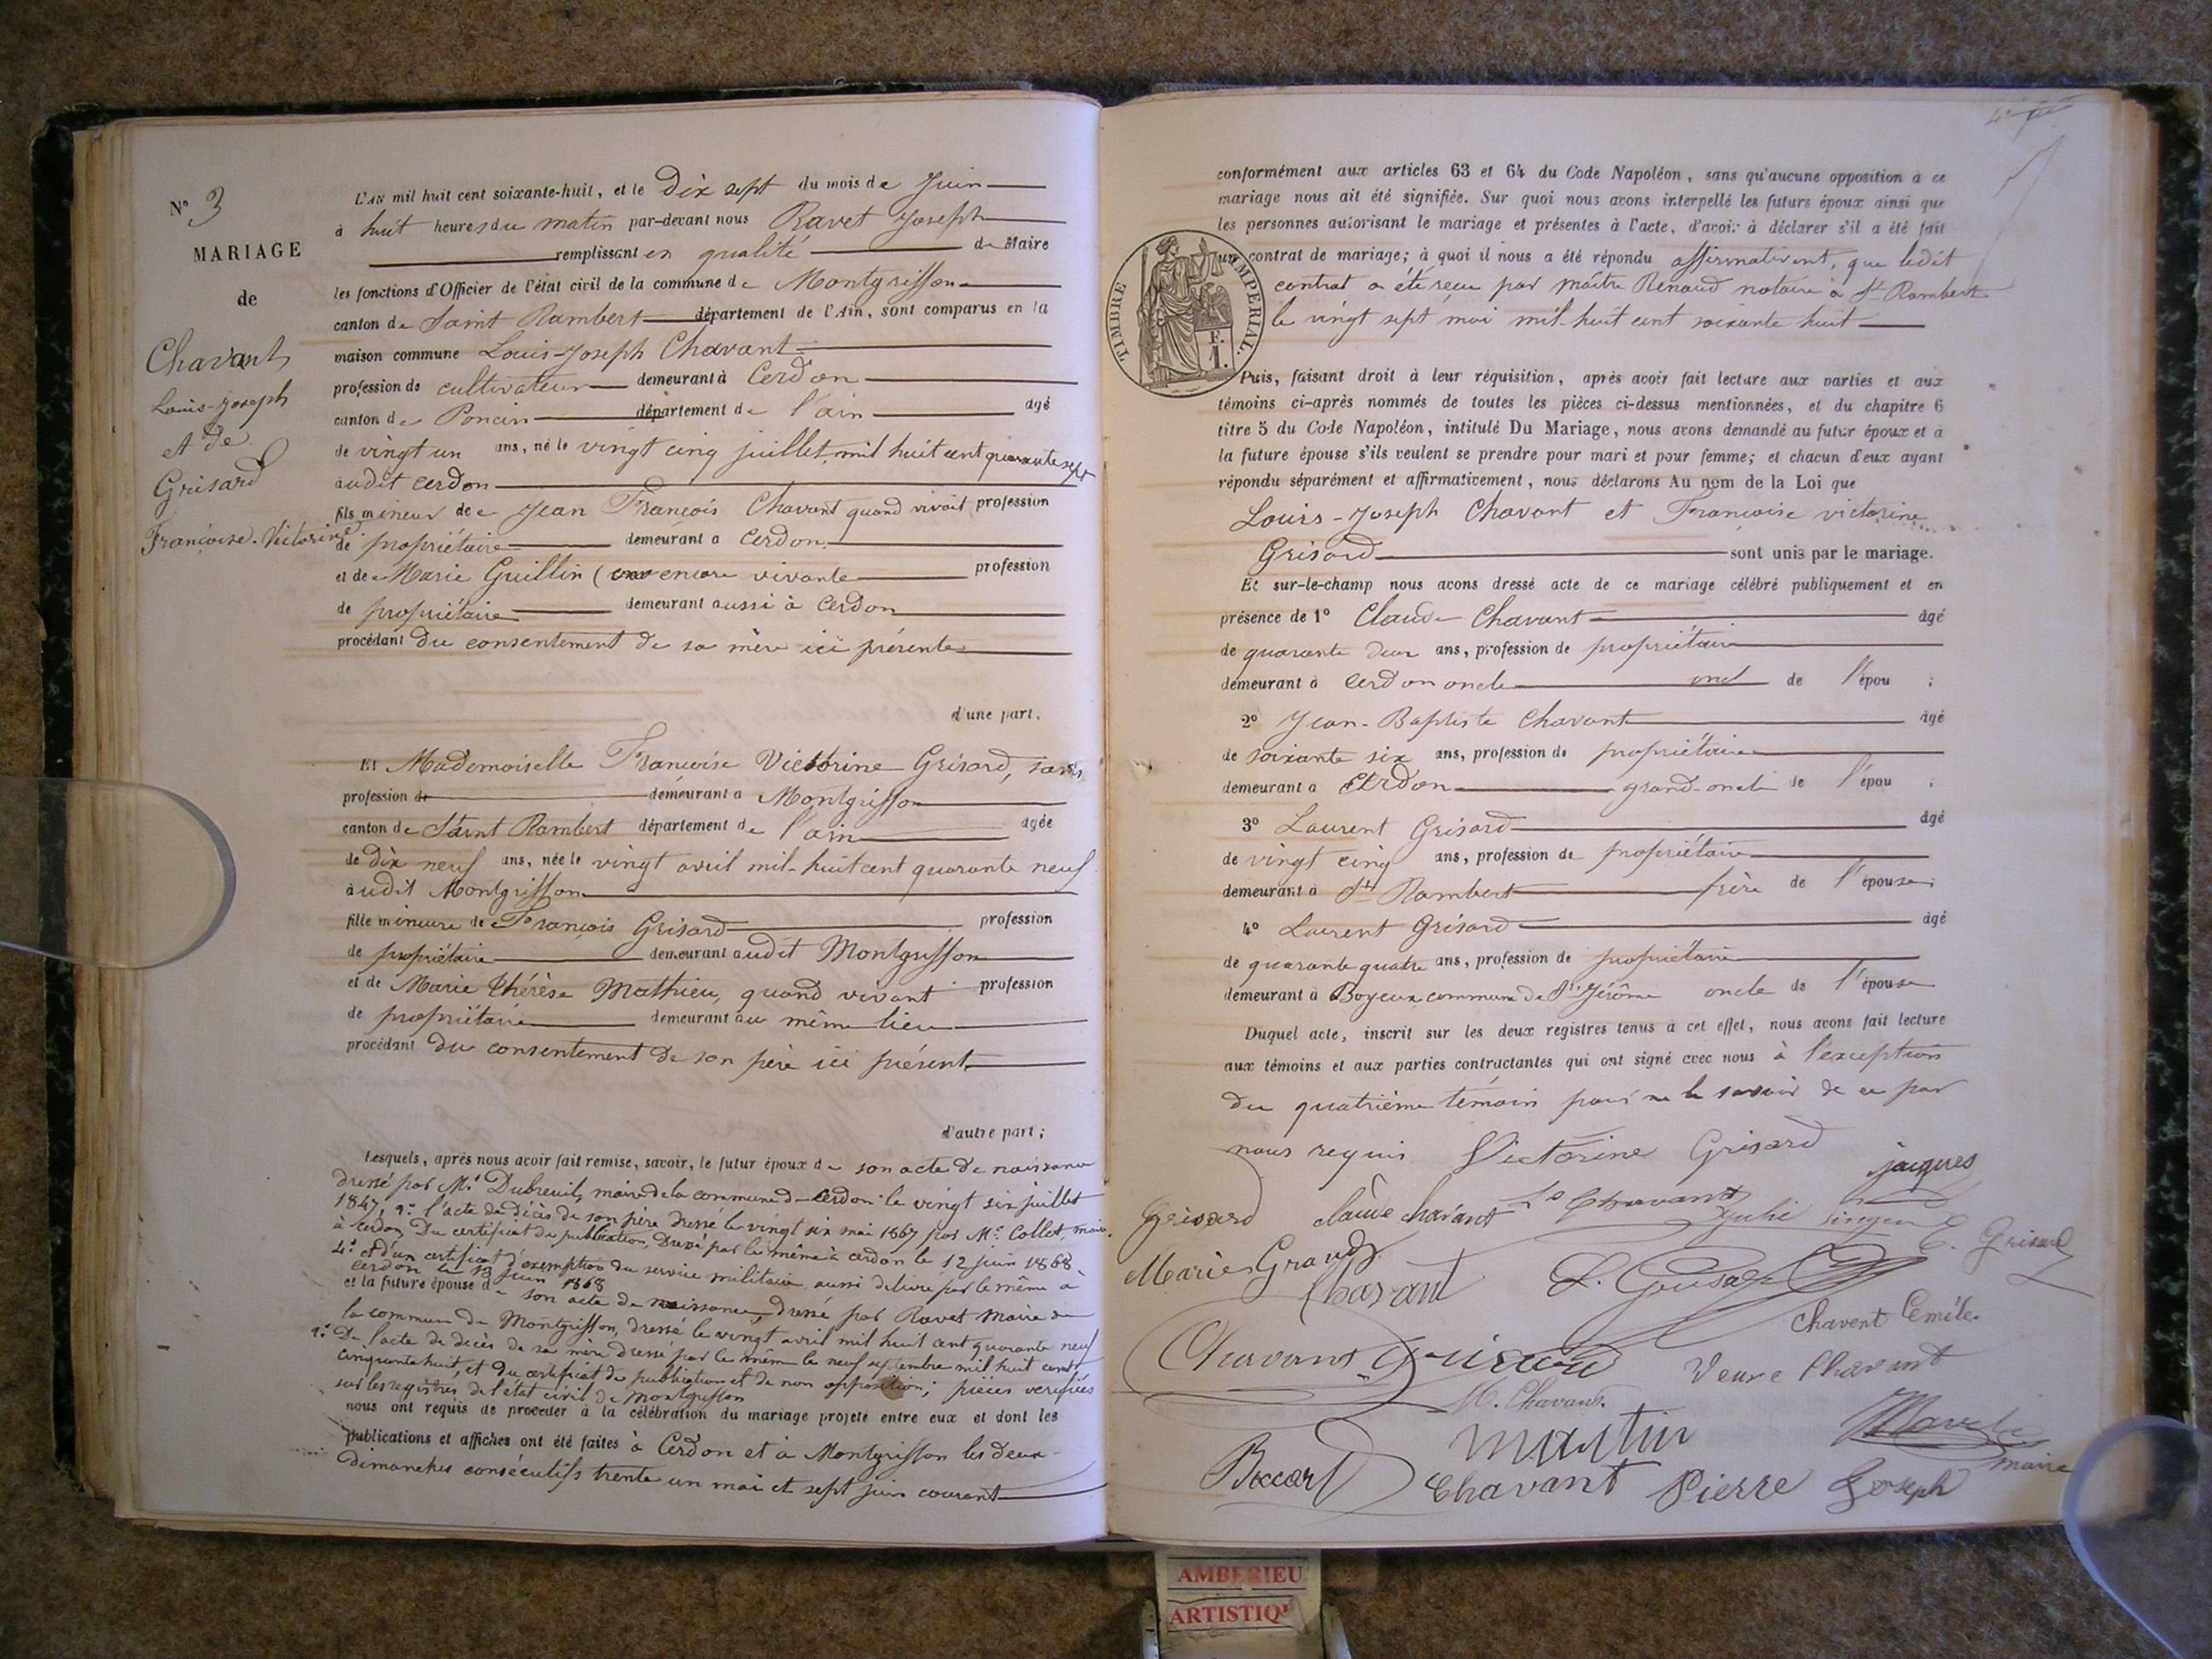 N° 3
MARIAGE
de
Chavant
Louis-Joseph
et de
Grisard
Françoise-Victorine
L'AN mil huit cent soixante-huit, et le Dix sept du mois de Juin
à huit heures du matin par-devant nous Ravet Joseph
remplissant en qualité de Maire
les fonctions d'Officier de l'état civil de la commune de Montgriffon
canton de Saint Rambert département de l'Ain, sont comparus en la
maison commune Louis-Joseph Chavant
profession de cultivateur demeurant à Cerdon
canton de Poncin département de l'ain âgé
de vingt un ans, né le vingt cinq juillet mil huit cent quarante sept
audit Cerdon
fils mineur de Jean François Chavant quand vivait profession
de propriétaire demeurant à Cerdon
et de Marie Guillin encore vivante profession
de propriétaire demeurant aussi à Cerdon
procédant du consentement de sa mère ici présente
d'une part.
Et Mademoiselle Françoise Victorine Grisard, sans
profession de demeurant à Montgriffon
canton de Saint Rambert département de l'ain âgée
de dix neuf ans, née le vingt avril mil-huit cent quarante neuf
audit Montgriffon
fille mineure de François Grisard profession
de propriétaire demeurant audit Montgriffon
et de Marie Thérèse Mathieu, quand vivant profession
de propriétaire demeurant au même lieu
procédant du consentement de son père ici présent
d'autre part;
Lesquels, après nous avoir fait remise, savoir, le futur époux de son acte de naissance
dressé par Mr Dubreuil, maire de la commune de Cerdon le vingt six juillet
1847, 2° l'acte de décès de son père dressé le vingt six mai 1867 par Mr Collet, maire
à Cerdon, Du certificat de publication, dressé par le même à cerdon le 12 juin 1868
4° et d'un certificat d'exemption du service militaire aussi délivré par le même à
Cerdon le 13 juin 1868
et la future épouse de son acte de naissance, dressé par Ravet Maire de
la commune de Montgriffon, dressé le vingt avril mil huit cent quarante neuf
2° De l'acte de décès de sa mère dressé par le même le neuf septembre mil huit cent
cinquante huit, et du certificat de publication et de non opposition; pièces verifiées
sur les registres de l'état civil de Montgriffon
nous ont requis de procéder à la célébration du mariage projeté entre eux et dont les
publications et affiches ont été faites à Cerdon et à Montgriffon les deux
dimanches consécutifs trente un mai et sept juin courant
conformément aux articles 63 et 64 du Code Napoléon, sans qu'aucune opposition à ce
mariage nous ait été signifiée. Sur quoi nous avons interpellé les futurs époux ainsi que
les personnes autorisant le mariage et présentes à l'acte, d'avoir à déclarer s'il a été fait
un contrat de mariage; à quoi il nous a été répondu affirmativent, que ledit
contrat a été reçu par maître Renaud notaire à St Rambert
le vingt sept mai mil-huit cent soixante huit
TIMBRE IMPERIAL.
F.
1.
Puis, faisant droit à leur réquisition, après avoir fait lecture aux parties et aux
témoins ci-après nommés de toutes les pièces ci-dessus mentionnées, et du chapitre 6
titre 5 du Code Napoléon, intitulé Du Mariage, nous avons demandé au futur époux et à
la future épouse s'ils veulent se prendre pour mari et pour femme; et chacun d'eux ayant
répondu séparément et affirmativement, nous déclarons Au nom de la Loi que
Louis-Joseph Chavant et Françoise victorine
Grisard sont unis par le mariage.
Et sur-le-champ nous avons dressé acte de ce mariage célébré publiquement et en
présence de 1° Claude Chavant âgé
de quarante deux ans, profession de propriétaire
demeurant à Cerdon oncle de l'épou ;
2° Jean-Baptiste Chavant âgé
de soixante six ans, profession de propriétaire
demeurant à Cerdon grand-oncle de l'épou ;
3° Laurent Grisard âgé
de vingt cinq ans, profession de propriétaire
demeurant à St Rambert frère de l'épouse;
4° Laurent Grisard âgé
de quarante quatre ans, profession de propriétaire
demeurant à Boyeux commune de St Jérôme oncle de l'épouse
Duquel acte, inscrit sur les deux registres tenus à cet effet, nous avons fait lecture
aux témoins et aux parties contractantes qui ont signé avec nous à l'exception
du quatrième témoin pour ne le savoir de ce par
nous requis Victorine Grisard
jaques
Grisard claude chavant Chavant Julie
Grisard
Marie Grand
Chavant
Chavent Emile.
Chavant
Veuve Chavant
M. Chavant.
Martin
Ravet
maire
Boccard Chavant Pierre Joseph
AMBERIEU
ARTISTIQ